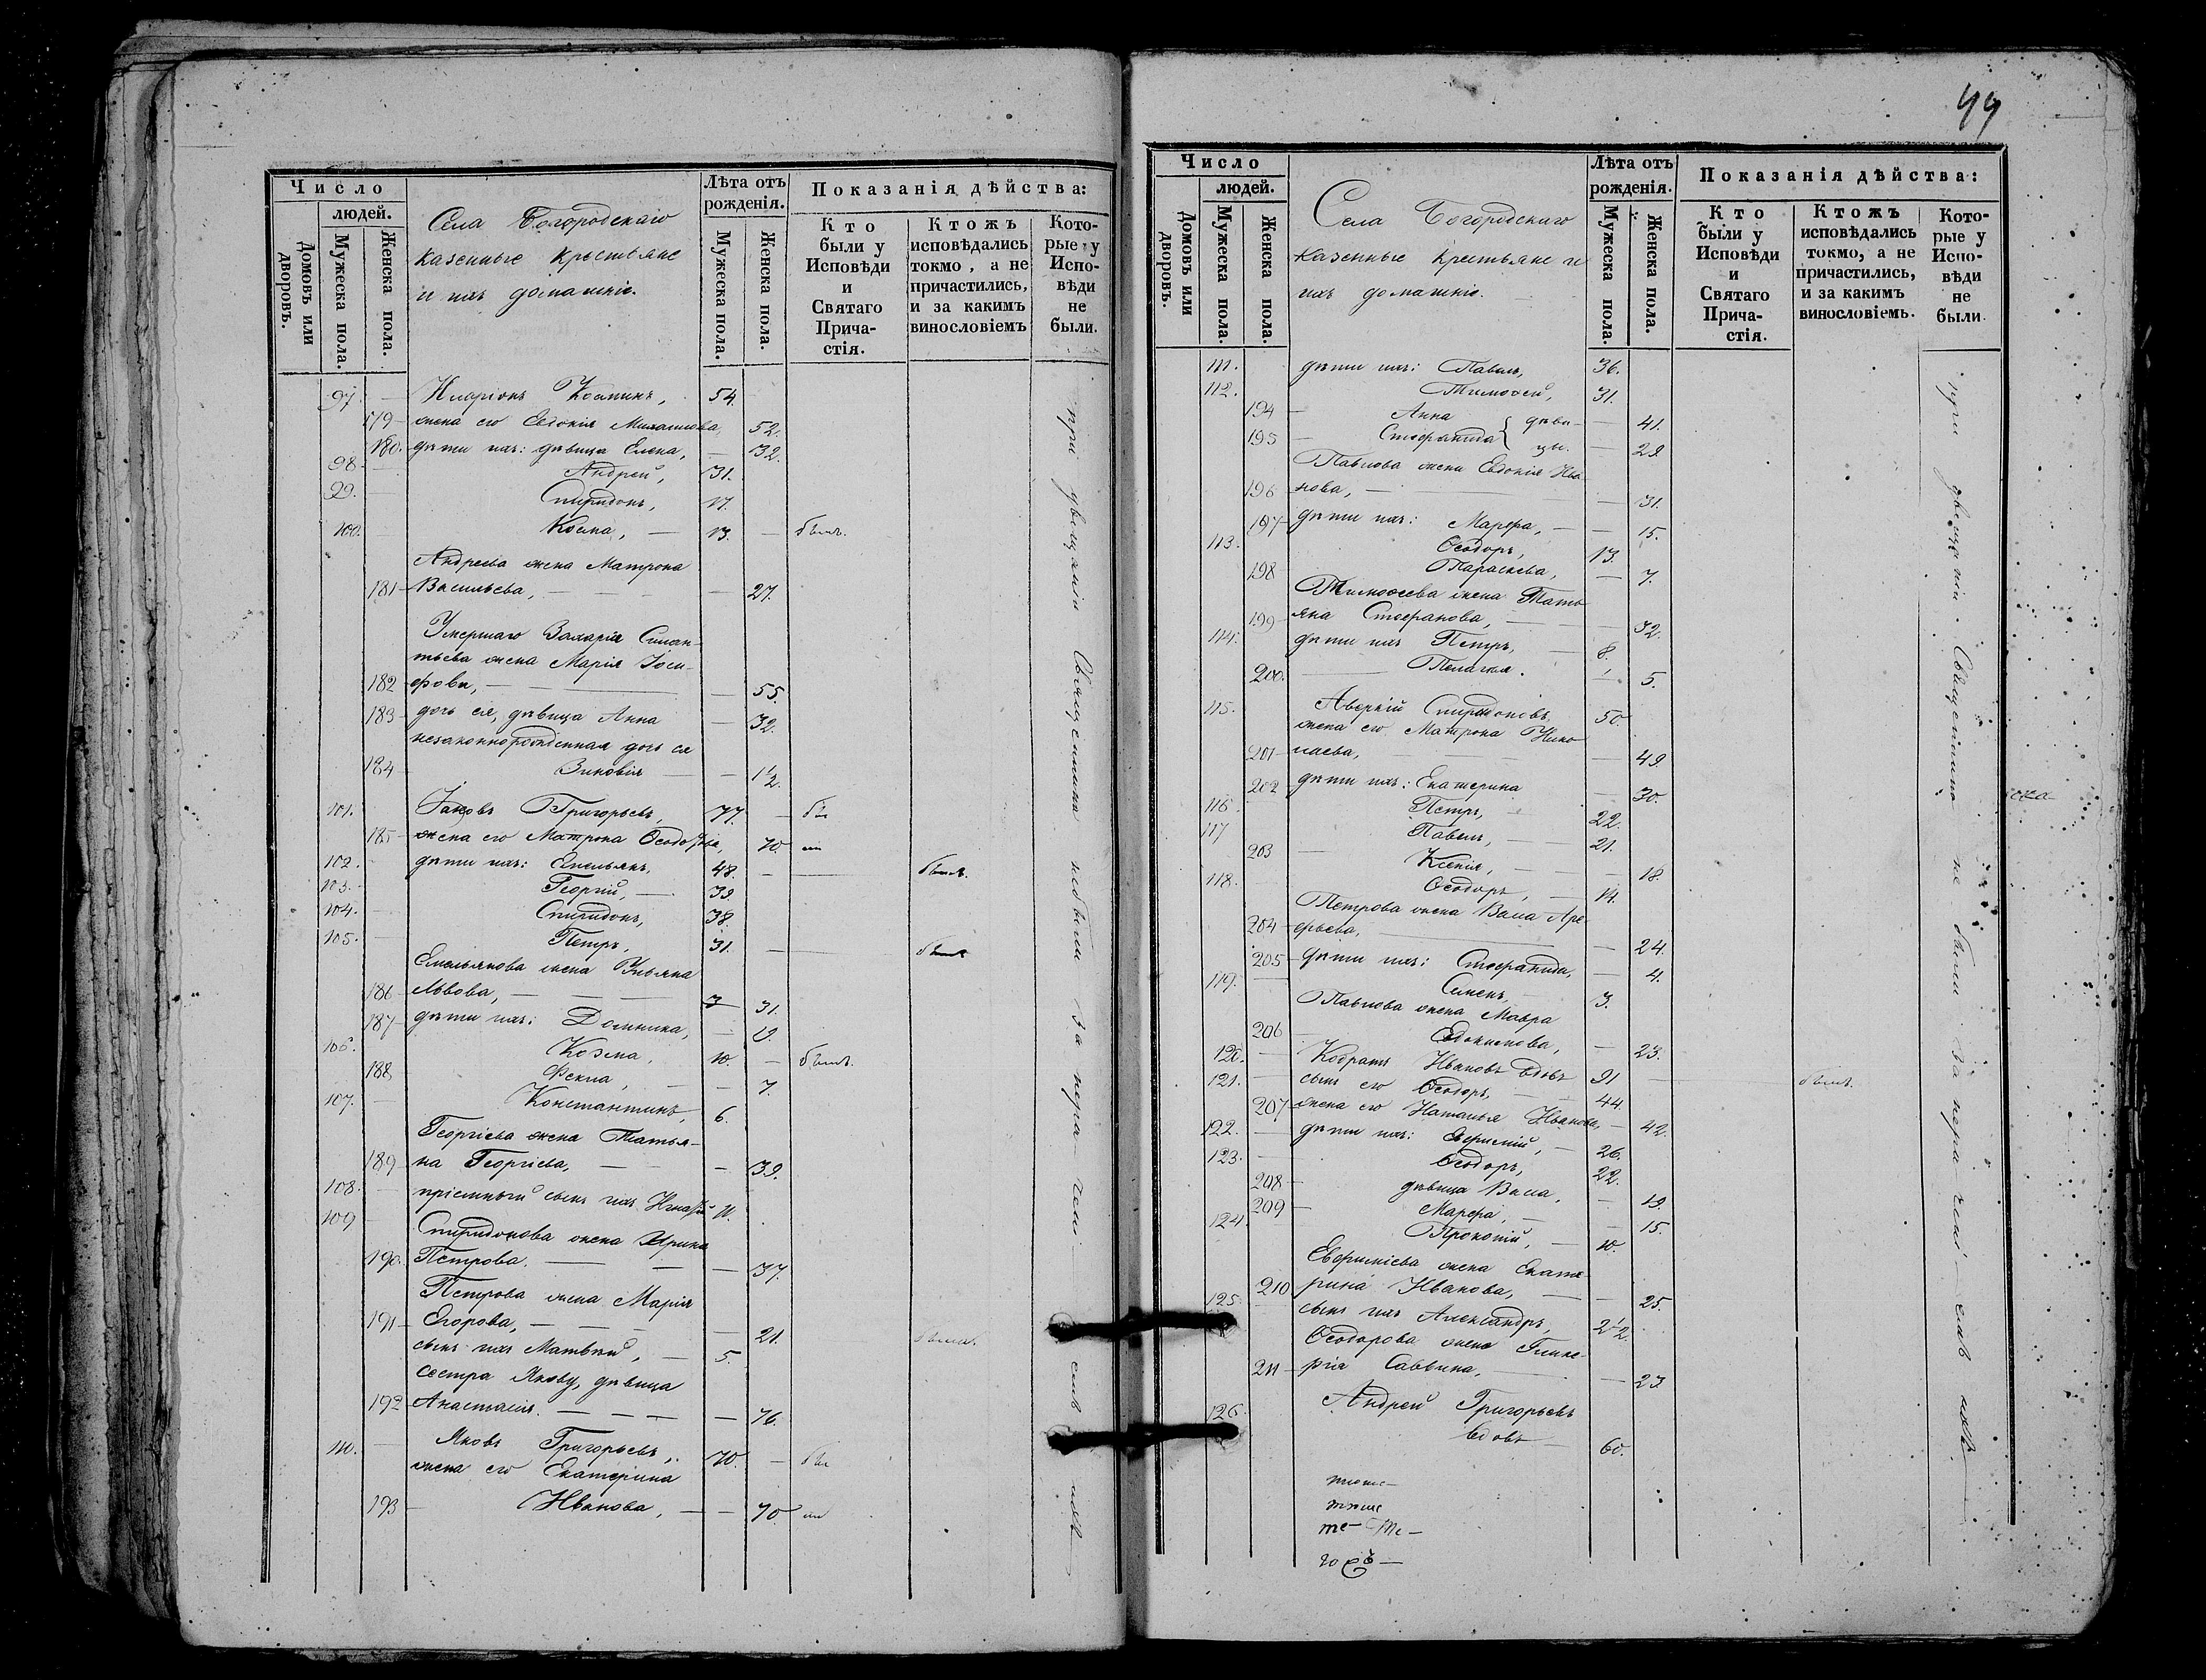 Число
людей.
Домовъ или дворовъ.
Мужеска пола.
Женска пола.
Села Богородскаго
казенные крестьяне
и ихъ домашніе.
Лѣта отъ
рожденія.
Мужеска пола.
Женска пола.
Показанія дѣйства:
Кто
были у
Исповѣди
и
Святаго
Прича-
стія.
Ктожъ
исповѣдались
токмо, а не
причастились,
и за какимъ
винословіемъ
Кото-
рые у
Испо-
вѣди
не
были.
97. Иларіонъ Козминъ, 54.
179 жена его Евдокія Михаилова, 52.
180. дѣти ихъ: дѣвица Елена, 32.
98. Андрей, 31.
99. Спиридонъ, 17.
100. Козма, 13. былъ.
Андреева жена Матрона
181 Васильева, 27.
Умершаго Захарія Силан-
тьева жена Марія Іоси-
182 фова, 55.
183 дочь ея, дѣвица Анна 32.
незаконнорожденная дочь ея
184 Зиновія 1½.
101. Іаковъ Григорьевъ, 77.
185 жена его Матрона Ѳеодо 70.
102. дѣти ихъ: Емельянъ, 48. былъ.
103. Георгій, 39.
104. Спиридонъ, 38.
105. Петръ, 31. былъ
Емельянова жена Ульяна
186 Львова, 31.
187 дѣти ихъ: Домника, 9.
106. Козма, 10. былъ.
188 Фекла, 7.
107. Константинъ, 6.
Георгіева жена Татья-
189 на Георгіева, 39.
108. пріемный сынъ ихъ Игнатій 11.
109 Спиридонова жена Ирина
190. Петрова. 37.
Петрова жена Марія
191 Егорова, 21. была.
сынъ ихъ Матвѣй, 5.
сестра Якову, дѣвица
192 Анастасія. 76.
110. Яковъ Григорьевъ, 70.
жена его Екатерина
193 Иванова, 70
при увѣщаніи Священника небыли за нера- чені- емъ
49
Число
людей.
Домовъ или дворовъ.
Мужеска пола.
Женска пола.
Села Богородскаго
казенные крестьяне и
ихъ домашніе.
Лѣта отъ
рожденія.
Мужеска пола.
Женска пола.
Показанія дѣйства:
Кто
были у
Исповѣди
и
Святаго
Прича-
стія.
Ктожъ
исповѣдались
токмо, а не
причастились,
и за какимъ
винословіемъ.
Кото-
рые у
Испо-
вѣди
не
были.
111. дѣти ихъ: Павелъ, 36.
112. Тимоѳей, 31.
194 Анна дѣви- 41.
195 Стефанида цы. 29.
Павлова жена Евдокія Ива
196 нова, 31.
197 дѣти ихъ: Марфа, 15.
113. Ѳеодоръ, 13.
198 Параскева, 7.
Тимоѳеева жена Тать
199 яна Стефанова, 32.
114. дѣти ихъ Петръ, 8.
200. Пелагея. 5.
115. Аверкій Спиридоновъ 50.
жена его Матрона Нико
201 лаева, 49.
202 дѣти ихъ: Екатерина 30.
116. Петръ, 22.
117 Павелъ, 21.
203 Ксенія, 18.
118. Ѳеодоръ, 14.
Петрова жена Васа Аре
204 фьева, 24.
205 дѣти ихъ: Стефанида, 4.
119. Симеонъ, 3.
Павлова жена Мавра
206 Евдокимова, 23.
120. Кодратъ Ивановъ вдовъ 91 былъ.
121. сынъ его Ѳеодоръ, 44.
207 жена его Наталья Иванова, 42.
122. дѣти ихъ: Евфимій, 26.
123. Ѳеодоръ, 22.
208 дѣвица Васа, 19.
209 Марфа, 15.
124. Прокопій, 10.
Евфиміева жена Екате-
210 рина Иванова, 25.
125. сынъ ихъ Александръ, 2½.
Ѳеодорова жена Глике-
211 рія Саввина, 23
126. Андрей Григорьевъ
вдовъ 60.
при увѣщаніи Священника не были за нера чені- емъ